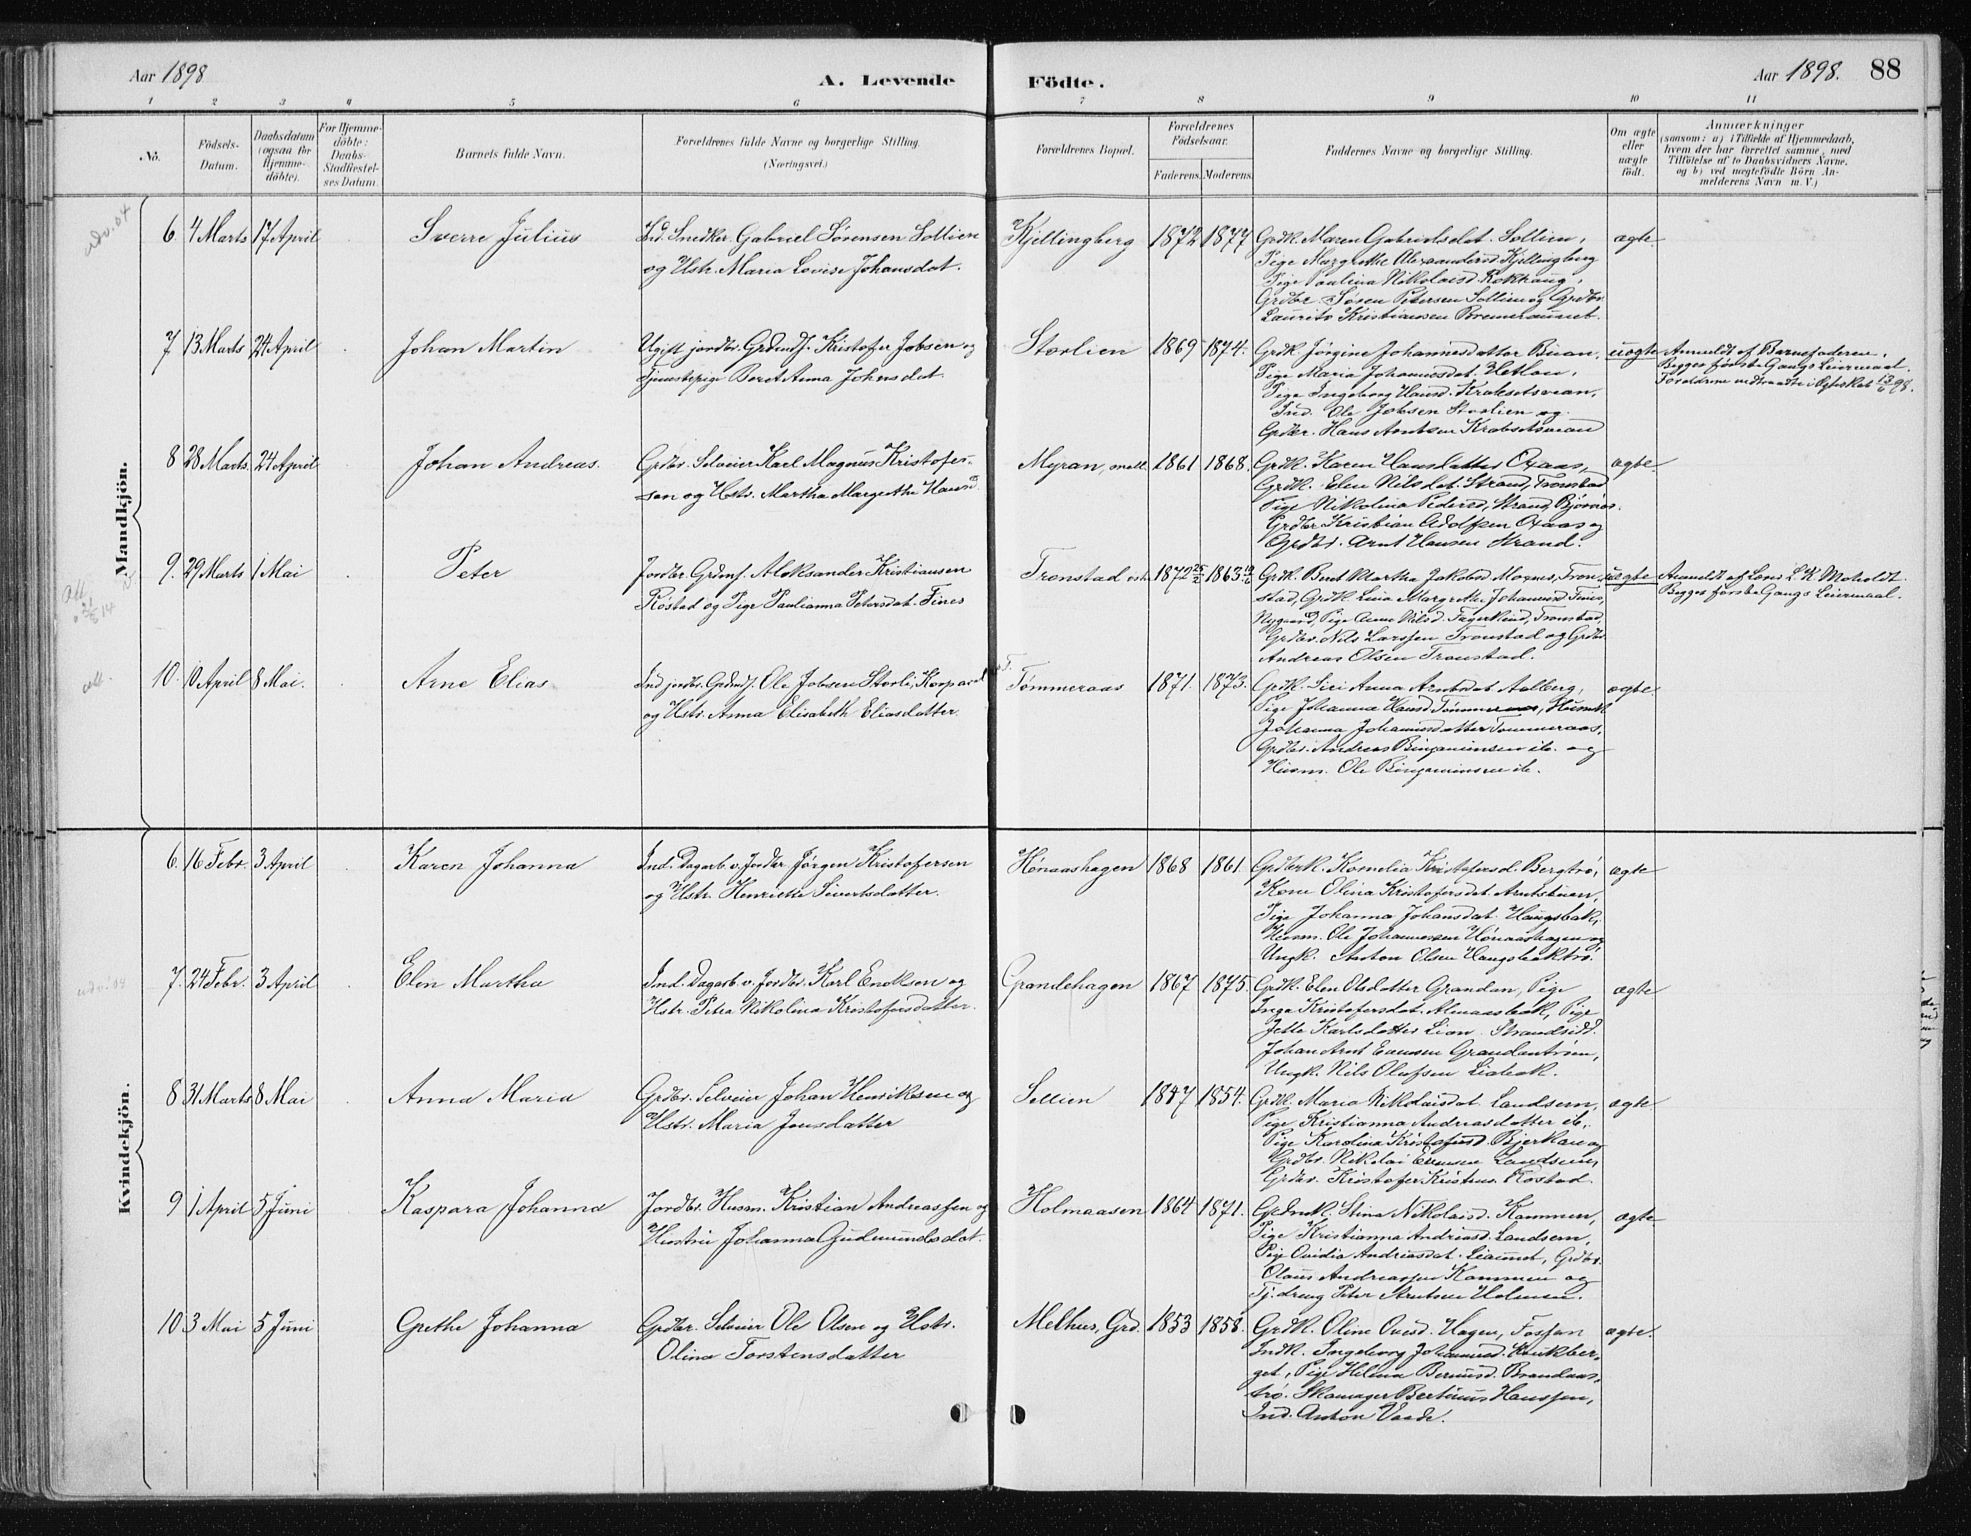 Aar 1898
A. Levende Födte.
Aar 1898. 88
1 2 3 4 5 6 7 8 9 10 11
No.
Födsels-Datum.
Daabsdatum (ogsaa for Hjemme-döbte).
For Hjemme-döbte: Daabs-Stadfæstel-ses Datum.
Barnets fulde Navn.
Forældrenes fulde Navne og borgerlige Stilling. (Næringsvei.)
Forældrenes Bopæl.
Forældrenes Födselsaar.
Faderens. Moderens.
Faddernes Navne og borgerlige Stilling.
Om ægte eller uægte födt.
Anmærkninger
(saasom: a) i Tilfælde af Hjemmedaab, hvem der har forrettet samme, med Tilföielse af to Daabsvidners Navne, og b) ved uægtefödte Börn Anmelderens Navn m. V.)
Mandkjön.
udv. 04
6. 4 Marts 17 April Sverre Julius
Ind. Snedker Gabriel Sørensen Sollien
og Hstr. Maria Lovise Johansdat.
Kjellingberg 1872 1877
Grdk. Maren Gabrielsdat. Sollien,
Pige Margrethe Alexandersd. Kjellingberg
Pige Paulina Nikolaisd.
Grdbr. Søren Petersen Sollien og Grdbr.
Laurits Kristiansen
ægte
7 13 Marts 24 April Johan Martin
Ugift jordbr. Kristofer Jobsen og
Tjenestepige Beret Anna Johnsdat.
Storlien 1869 1874.
Grdk. Jørgine Johannesdatter Buan,
Pige Maria Johannesdat.
Pige Ingeborg Hansd. Krabsetsvean,
Ind. Ole Jobsen Storlien og
Grdbr. Hans Arntsen Krabsetsvean
uægte
Anmeldt af Barnefaderen.
Begges første Gangs Leiermaal.
Forældrene indtraadte i Ægteskab 98.
8 28 Marts 24 April Johan Andreas.
Grdbr. Selveier Karl Magnus Kristofer-
sen og Hstr. Martha Margrethe Hansd.
Myran, 1861 1868.
Grdk. Karen Hansdatter Oxaas,
Grdk. Elen Nilsdat. Strand, Tronstad
Pige Nikolina Pedersd. Strand, Bjørnøs.
Grdbr. Kristian Adolfsen Oxaas og
Grdbr. Arnt Hansen Strand.
ægte
9. 29 Marts 1 Mai Peter
Jordbr. Aleksander Kristiansen
Röstad og Pige Paulianna Petersdat. Fines
Tronstad 1872 1863
Grdk. Beret Martha Mognes, Tron-
stad, Grdk. Lina Margrethe Johannesd. Fines,
Pige Anne Nilsd. Tronstad,
Grdbr. Nils Larssen Tronstad og Grdbr.
Andreas Olsen Tronstad.
uægte
Anmeldt af L. K. Moholdt.
Begges første Gangs Leiermaal.
10. 10 April 8 Mai. Arne Elias
Ind. jordbr. Ole Jobsen Storli,
og Hstr. Anna Elisabeth Eliasdatter.
Tømmeraas 1871. 1873.
Grdk. Siri Anna Arntsdat. Aalberg,
Pige Johanna Hansd. Tømmeraas,
Johanna Johannesdatter Tømmeraas,
Grdbr. Andreas Bingaminsen ib. og
Husm. Ole Bingaminsen ib.
ægte
Kvindekjön.
6. 16 Febr. 3 April Karen Johanna
Ind. Dagarb. v. Jordbr. Jørgen Kristofersen
og Hstr. Henriette Sivertsdatter.
Hønaashagen 1868 1861
Grdbrk. Kornelia Kristofersd. Bergtrø,
Kone Olina Kristofersdat.
Pige Johanna Johansdat. Haugsbak,
Husm. Ole Johannessen Hønaashagen og
Ungk. Anton Olsen
ægte
udv. 04
7. 24 Febr. 3 April Elen Martha
Ind. Dagarb. v. Jordbr. Karl Enoksen og
Hstr. Petra Nikolina Kristofersdatter.
Grandehagen 1867 1875.
Grdk. Elen Olsdatter Grandan, Pige
Inga Kristofersdat. Pige
Jette Karlsdatter Lian.
Johan Arnt Evensen
Ungk. Nils Olufsen Liabak.
ægte
8 31 Marts 8 Mai Anna Maria
Grdbr. Selveier Johan Henriksen og
Hstr. Maria Jonsdatter
Sellien 1847 1854.
Grdk. Maria Nikolaisdat. Landsem,
Pige Kristianna Andreasdatter ib.,
Pige Karolina Kristofersd. Bjerkan og
Grdbr. Nikolai Evensen Landsem,
Grdbr. Kristofer Kristens. Röstad.
ægte
9 1 April 5 Juni Kaspara Johanna
Jordbr. Husm. Kristian Andreassen og
Hustru Johanna Gudmundsdat.
Holmaasen 1864 1871.
Stina Nikolaisd. Kammen,
Pige Kristianna Andreasd. Landsem,
Pige Ovidia Andreasdat. Grdbr.
Olaus Andreassen Kammen og
Tj.dreng Peter Arntsen Holmen.
ægte
10 3 Mai 5 Juni Grethe Johanna
Grdbr. Selveier Ole Olsen og Hstr.
Olina Torstensdatter
Melhus, Grd. 1853 1858.
Grdk. Oline Ovesd. Hagen, Fossan
Indk. Ingeborg Johannesd.
get, Pige Helena Berntsd. Brandaas-
trø. Skomager Bertinus Hanssen,
Ind. Anton Vaade.
ægte.